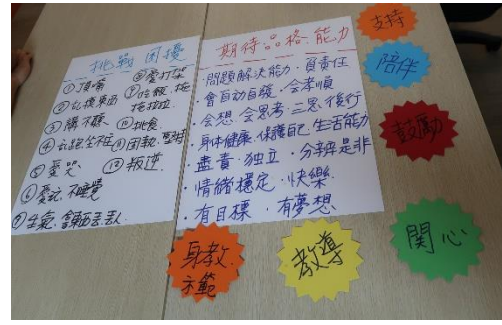 挑戰 困擾
① 頂嘴
② 亂摸東西
③ 講不聽
④ 玩後坐不住
⑤ 愛哭
⑥ 愛玩、不睡覺
⑦ 生氣、拿東西丟人
⑧ 愛打架
拖拖拉拉
⑩ 挑食
⑪ 固執、堅持
⑫ 叛逆
期待品格、能力
·問題解決能力·負責任
會自動自發·會孝順
·會想·會思考·三思後行
·身体健康·保護自己·生活能力
·盡責·獨立·分辨是非
·情緒穩定·快樂
·有目標·有夢想
支持
陪伴
鼓勵
關心
教導
身教
示範